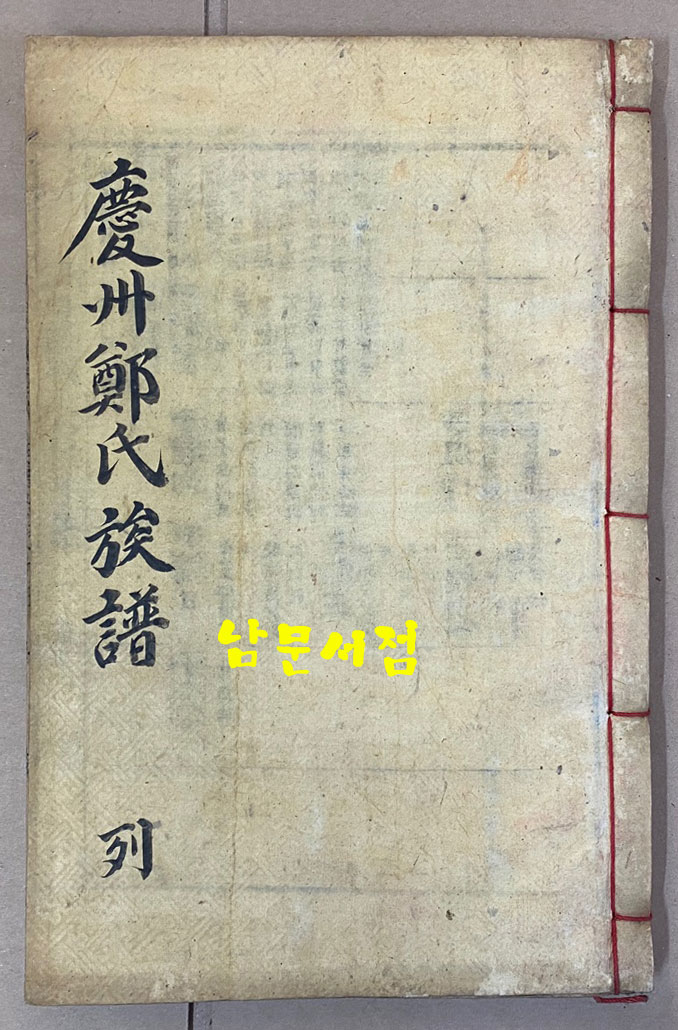 慶州鄭氏族譜
列
남문서점